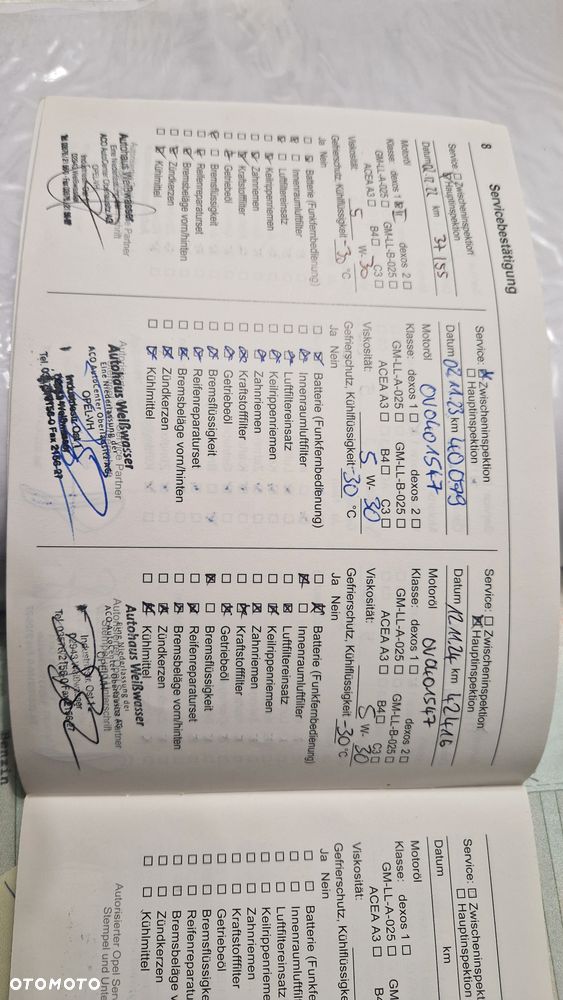 8
Servicebestätigung
Service: Zwischeninspektion
Hauptinspektion
Datum 12.22 km 37155
Motoröl
Klasse: dexos 1 dexos 2
GM-LL-A-025 GM-LL-B-025
ACEA A3 B4 C3
Viskosität: 5 W- 30
Gefrierschutz, Kühlflüssigkeit -30 °C
Ja Nein
Batterie (Funkfernbedienung)
Innenraumluftfilter
Luftfiltereinsatz
Keilrippenriemen
Zahnriemen
Kraftstofffilter
Getriebeöl
Bremsflüssigkeit
Reifenreparaturset
Bremsbeläge vorn/hinten
Zündkerzen
Kühlmittel
Autohaus Weißwasser
Service: Zwischeninspektion
Hauptinspektion
Datum 02.11.23 km 40079
Motoröl OV0401547
Klasse: dexos 1 dexos 2
GM-LL-A-025 GM-LL-B-025
ACEA A3 B4 C3
Viskosität: 5 W- 30
Gefrierschutz, Kühlflüssigkeit -30 °C
Ja Nein
Batterie (Funkfernbedienung)
Innenraumluftfilter
Luftfiltereinsatz
Keilrippenriemen
Zahnriemen
Kraftstofffilter
Getriebeöl
Bremsflüssigkeit
Reifenreparaturset
Bremsbeläge vorn/hinten
Zündkerzen
Kühlmittel
Autohaus Weißwasser
Eine Niederlassung der
ACO AutoCenter Oberlausitz AG
Service: Zwischeninspektion
Hauptinspektion
Datum 12.11.24 km 42416
Motoröl OV0401547
Klasse: dexos 1 dexos 2
GM-LL-A-025 GM-LL-B-025
ACEA A3 B4 C3
Viskosität: 5 W- 30
Gefrierschutz, Kühlflüssigkeit -30 °C
Ja Nein
Batterie (Funkfernbedienung)
Innenraumluftfilter
Luftfiltereinsatz
Keilrippenriemen
Zahnriemen
Kraftstofffilter
Getriebeöl
Bremsflüssigkeit
Reifenreparaturset
Bremsbeläge vorn/hinten
Zündkerzen
Kühlmittel
Autohaus Weißwasser
Service: Zwischeninspektion
Hauptinspektion
Datum km
Motoröl
Klasse: dexos 1
GM-LL-A-025
ACEA A3
Viskosität:
Gefrierschutz, Kühlflüssigk
Ja Nein
Batterie (Funkfe
Innenraumluftfil
Luftfiltereinsatz
Keilrippenrieme
Zahnriemen
Kraftstofffilter
Getriebeöl
Bremsflüssigke
Reifenreparatu
Bremsbeläge v
Zündkerzen
Kühlmittel
Autorisierter Opel Serv
Stempel und Unte
OTOMOTO